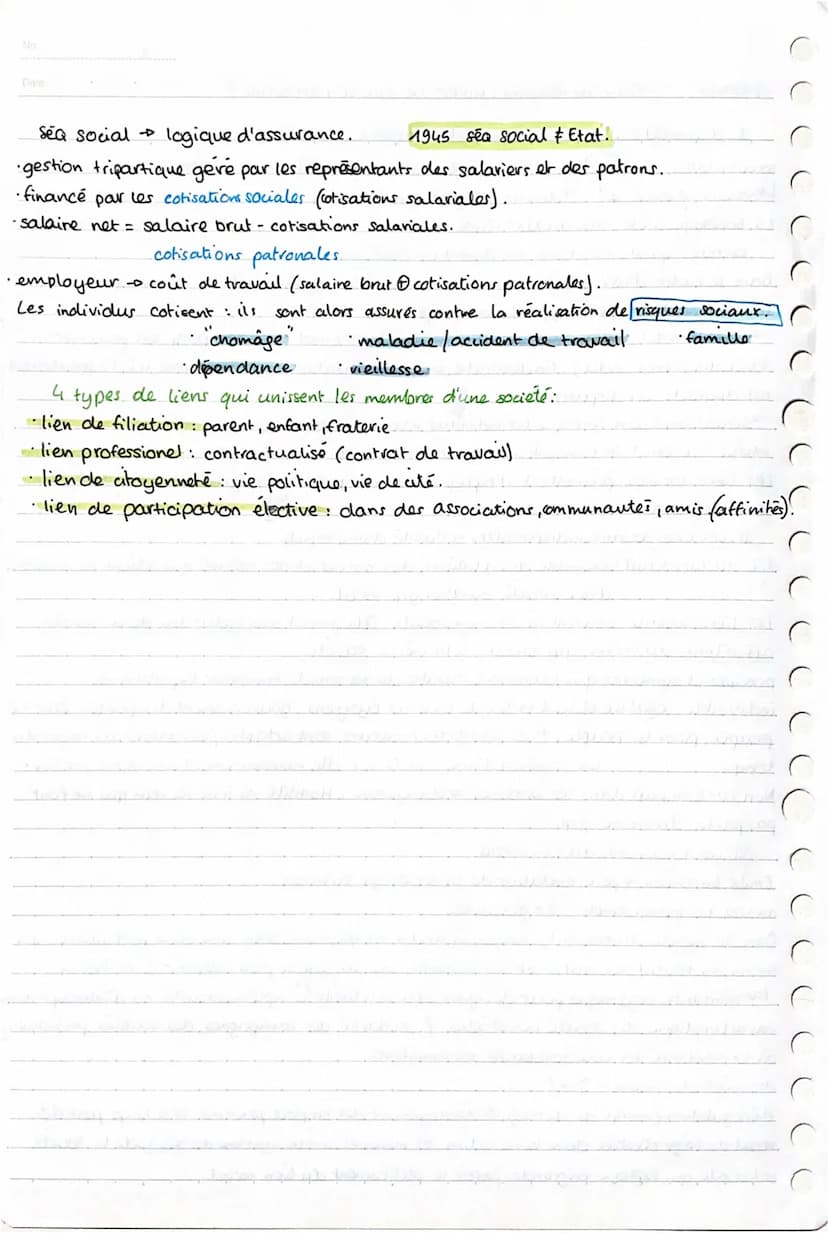 No
Date
SéQ social → logique d'assurance. 1945 séQ social ≠ Etat.
· gestion tripartique géré par les représentants des salariers et des patrons.
· financé par les cotisations sociales (cotisations salariales).
· salaire net = salaire brut - cotisations salariales.
cotisations patronales
· employeur → coût de travail (salaire brut ⊕ cotisations patronales).
Les individus cotisent : ils sont alors assurés contre la réalisation de risques sociaux.
· "chomâge" · maladie/accident de travail · famille
· dépendance · vieillesse
4 types de liens qui unissent les membres d'une société :
· lien de filiation : parent, enfant, fraterie
· lien professionel : contractualisé (contrat de travail)
· lien de citoyenneté : vie politique, vie de cité.
· lien de participation élective : dans des associations, communautés, amis (affinités).